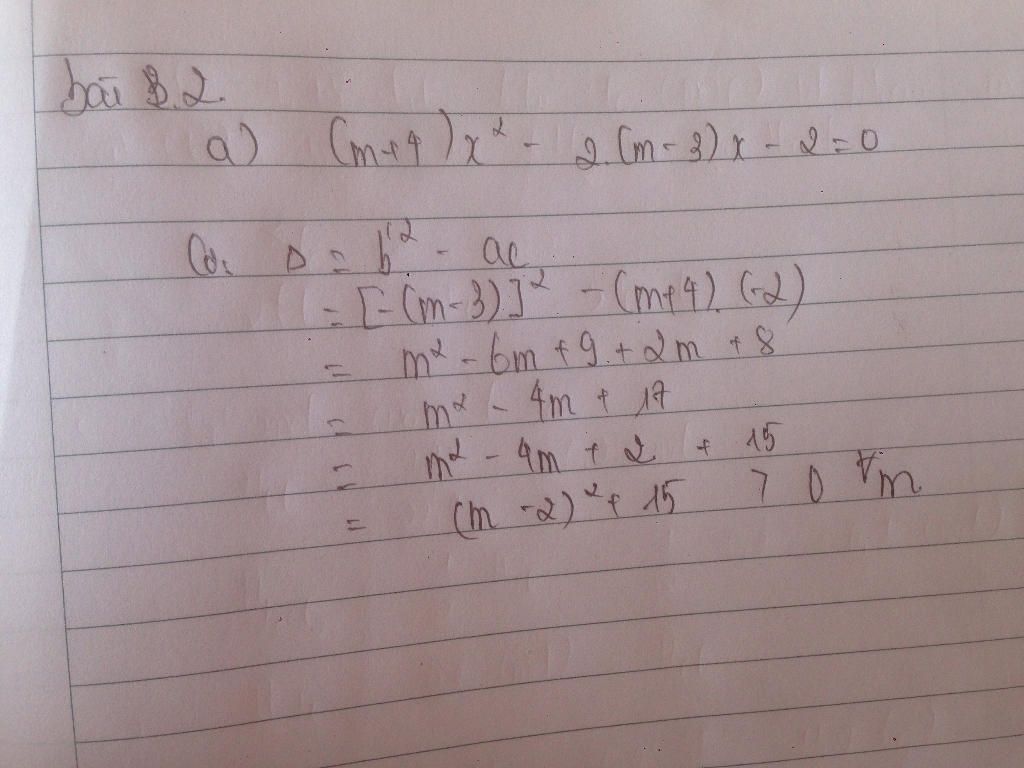 bài 3.2.
a) (m+4)x² - 2.(m-3)x - 2=0
Có: Δ = b'² - ac
= [-(m-3)]² - (m+4).(-2)
= m² - 6m + 9 + 2m + 8
= m² - 4m + 17
= m² - 4m + 2 + 15
= (m-2)² + 15 > 0 ∀m